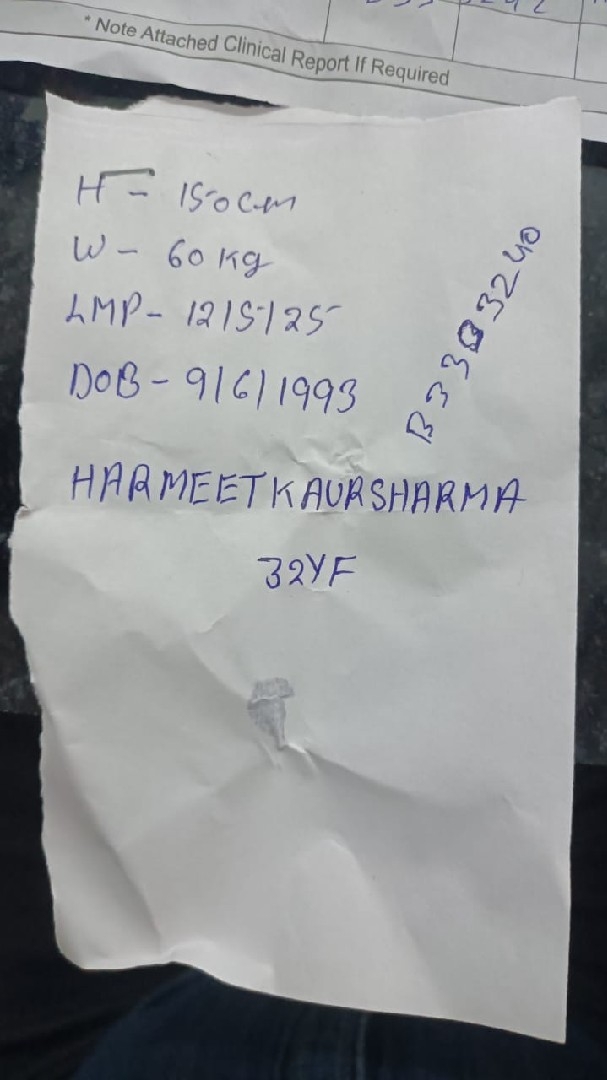 * Note Attached Clinical Report If Required
H - 150cm
W - 60 kg
LMP - 12/5/25
DOB - 9/6/1993
B3303240
HARMEET KAUR SHARMA
32YF